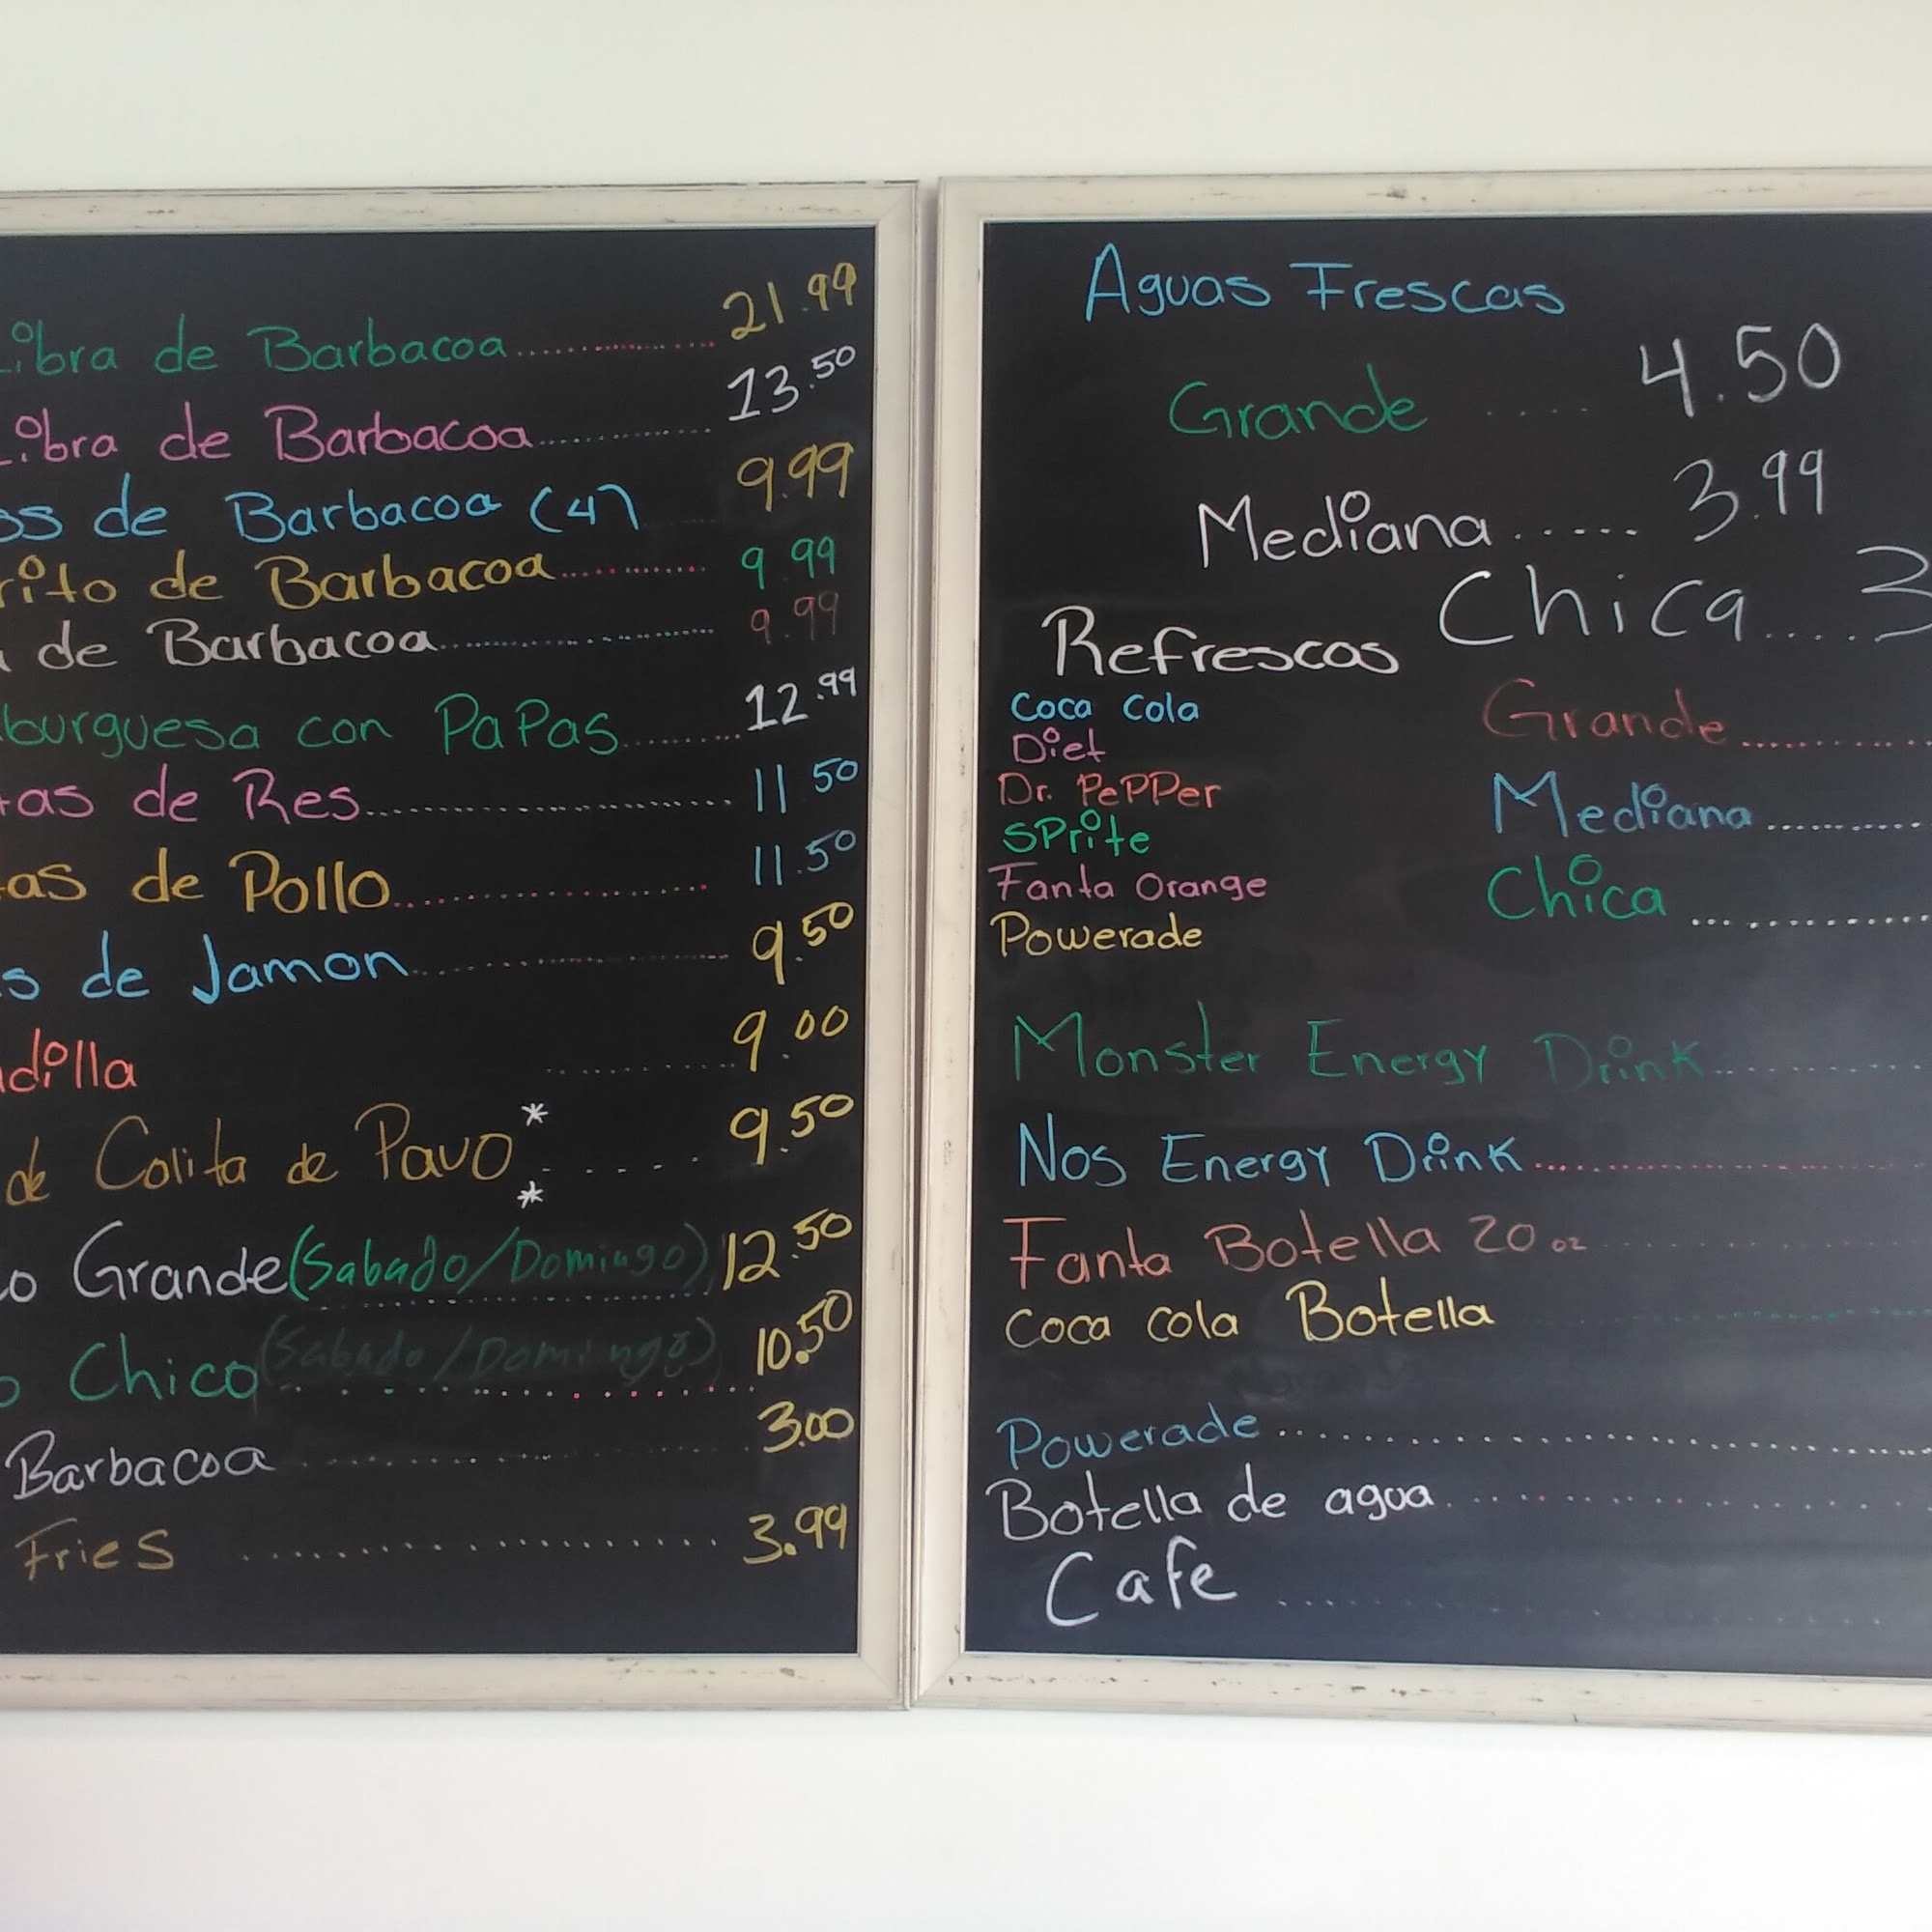 Libra de Barbacoa 21.99
Libra de Barbacoa 13.50
os de Barbacoa (4) 9.99
rito de Barbacoa 9.99
de Barbacoa 9.99
burguesa con PaPas 12.99
tas de Res 11.50
tas de Pollo 11.50
s de Jamon 9.50
dilla 9.00
de Colita de Pavo** 9.50
o Grande (Sabado/Domingo) 12.50
o Chico (Sabado/Domingo) 10.50
Barbacoa 3.00
Fries 3.99
Aguas Frescas
Grande 4.50
Mediana 3.99
Chica 3
Refrescos
Coca Cola
Diet
Dr. PePPer
SPrite
Fanta Orange
Powerade
Grande
Mediana
Chica
Monster Energy Drink
Nos Energy Drink
Fanta Botella 20 oz
Coca cola Botella
Powerade
Botella de agua
Cafe